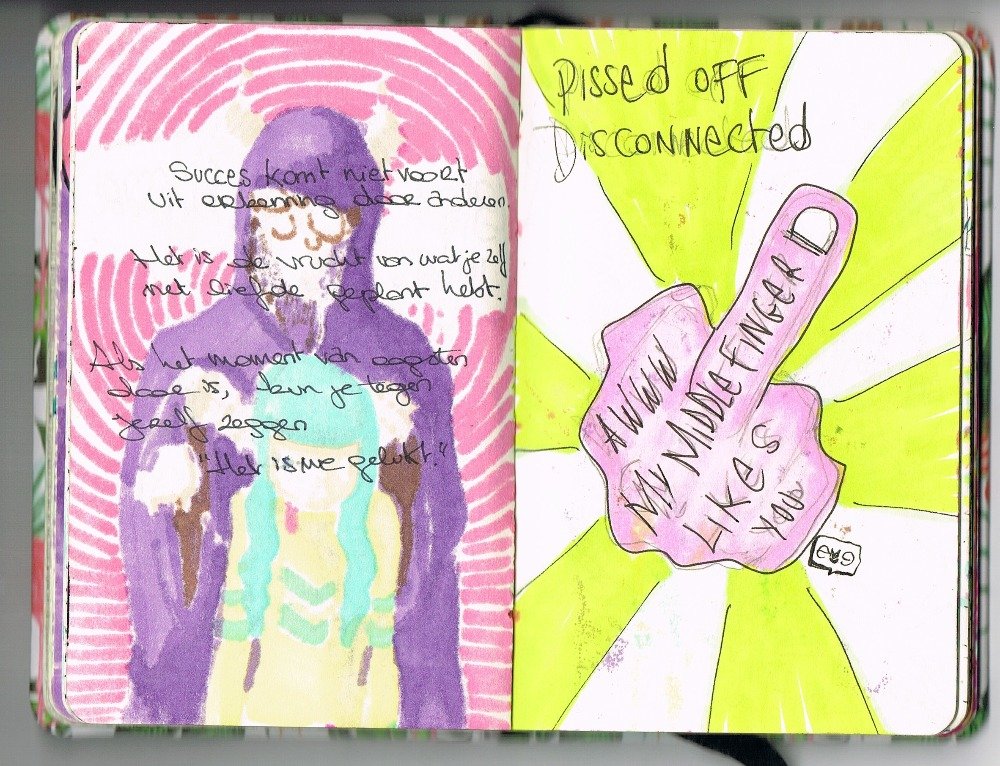 Succes komt niet voort
uit erkenning door anderen.
Het is de vrucht van wat je zelf
met liefde geplant hebt.
Als het moment van oogsten
daar is, kun je tegen
jezelf zeggen
"Het is me gelukt."
Pissed OFF
Disconnected
AWWW
MY MIDDLE FINGER
LIKES
YOU